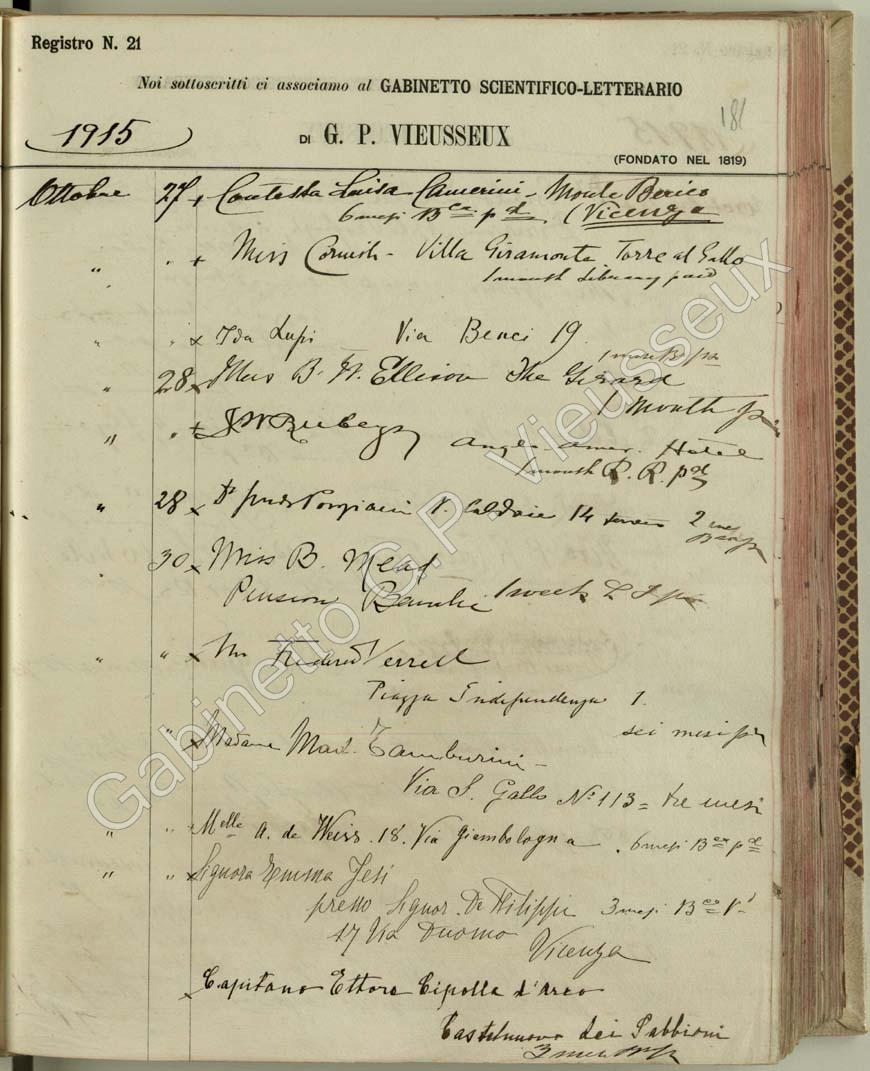 Registro N. 21
Noi sottoscritti ci associamo al GABINETTO SCIENTIFICO-LETTERARIO
181
1915
DI G. P. VIEUSSEUX
(FONDATO NEL 1819)
Ottobre 27 + Contessa Luisa Camerini - Monte Berico
6 mesi Bca pd (Vicenza
" " + Miss Cornish - Villa Giramonte Torre al Gallo
1 month Library paid
" " x Ida Lupi Via Benci 19
1 mese
" 28 x B. H. Ellison The Girard
1 Month
" " + Anglo Amer. Hotel
1 month R. R. pd
" 28 x Dr 14 2
" 30 x Miss B. Mead
Pension 1 week
" " x Verrell
Piazza Independenza 1.
sei mesi
" x Madame Tamburini -
Via S. Gallo No 113 = tre mesi
" " x Melle A. de Weiss. 18 Via Giambologna . 6 mesi Bca pd
" " x Signora Emma Jesi
presso Signor De Filippi 3 mesi Bca
17 Via Duomo
Vicenza
x Capitano Ettore Cipolla d'Arco
Castelnuovo dei Sabbioni
3 mesi
Gabinetto G.P. Vieusseux